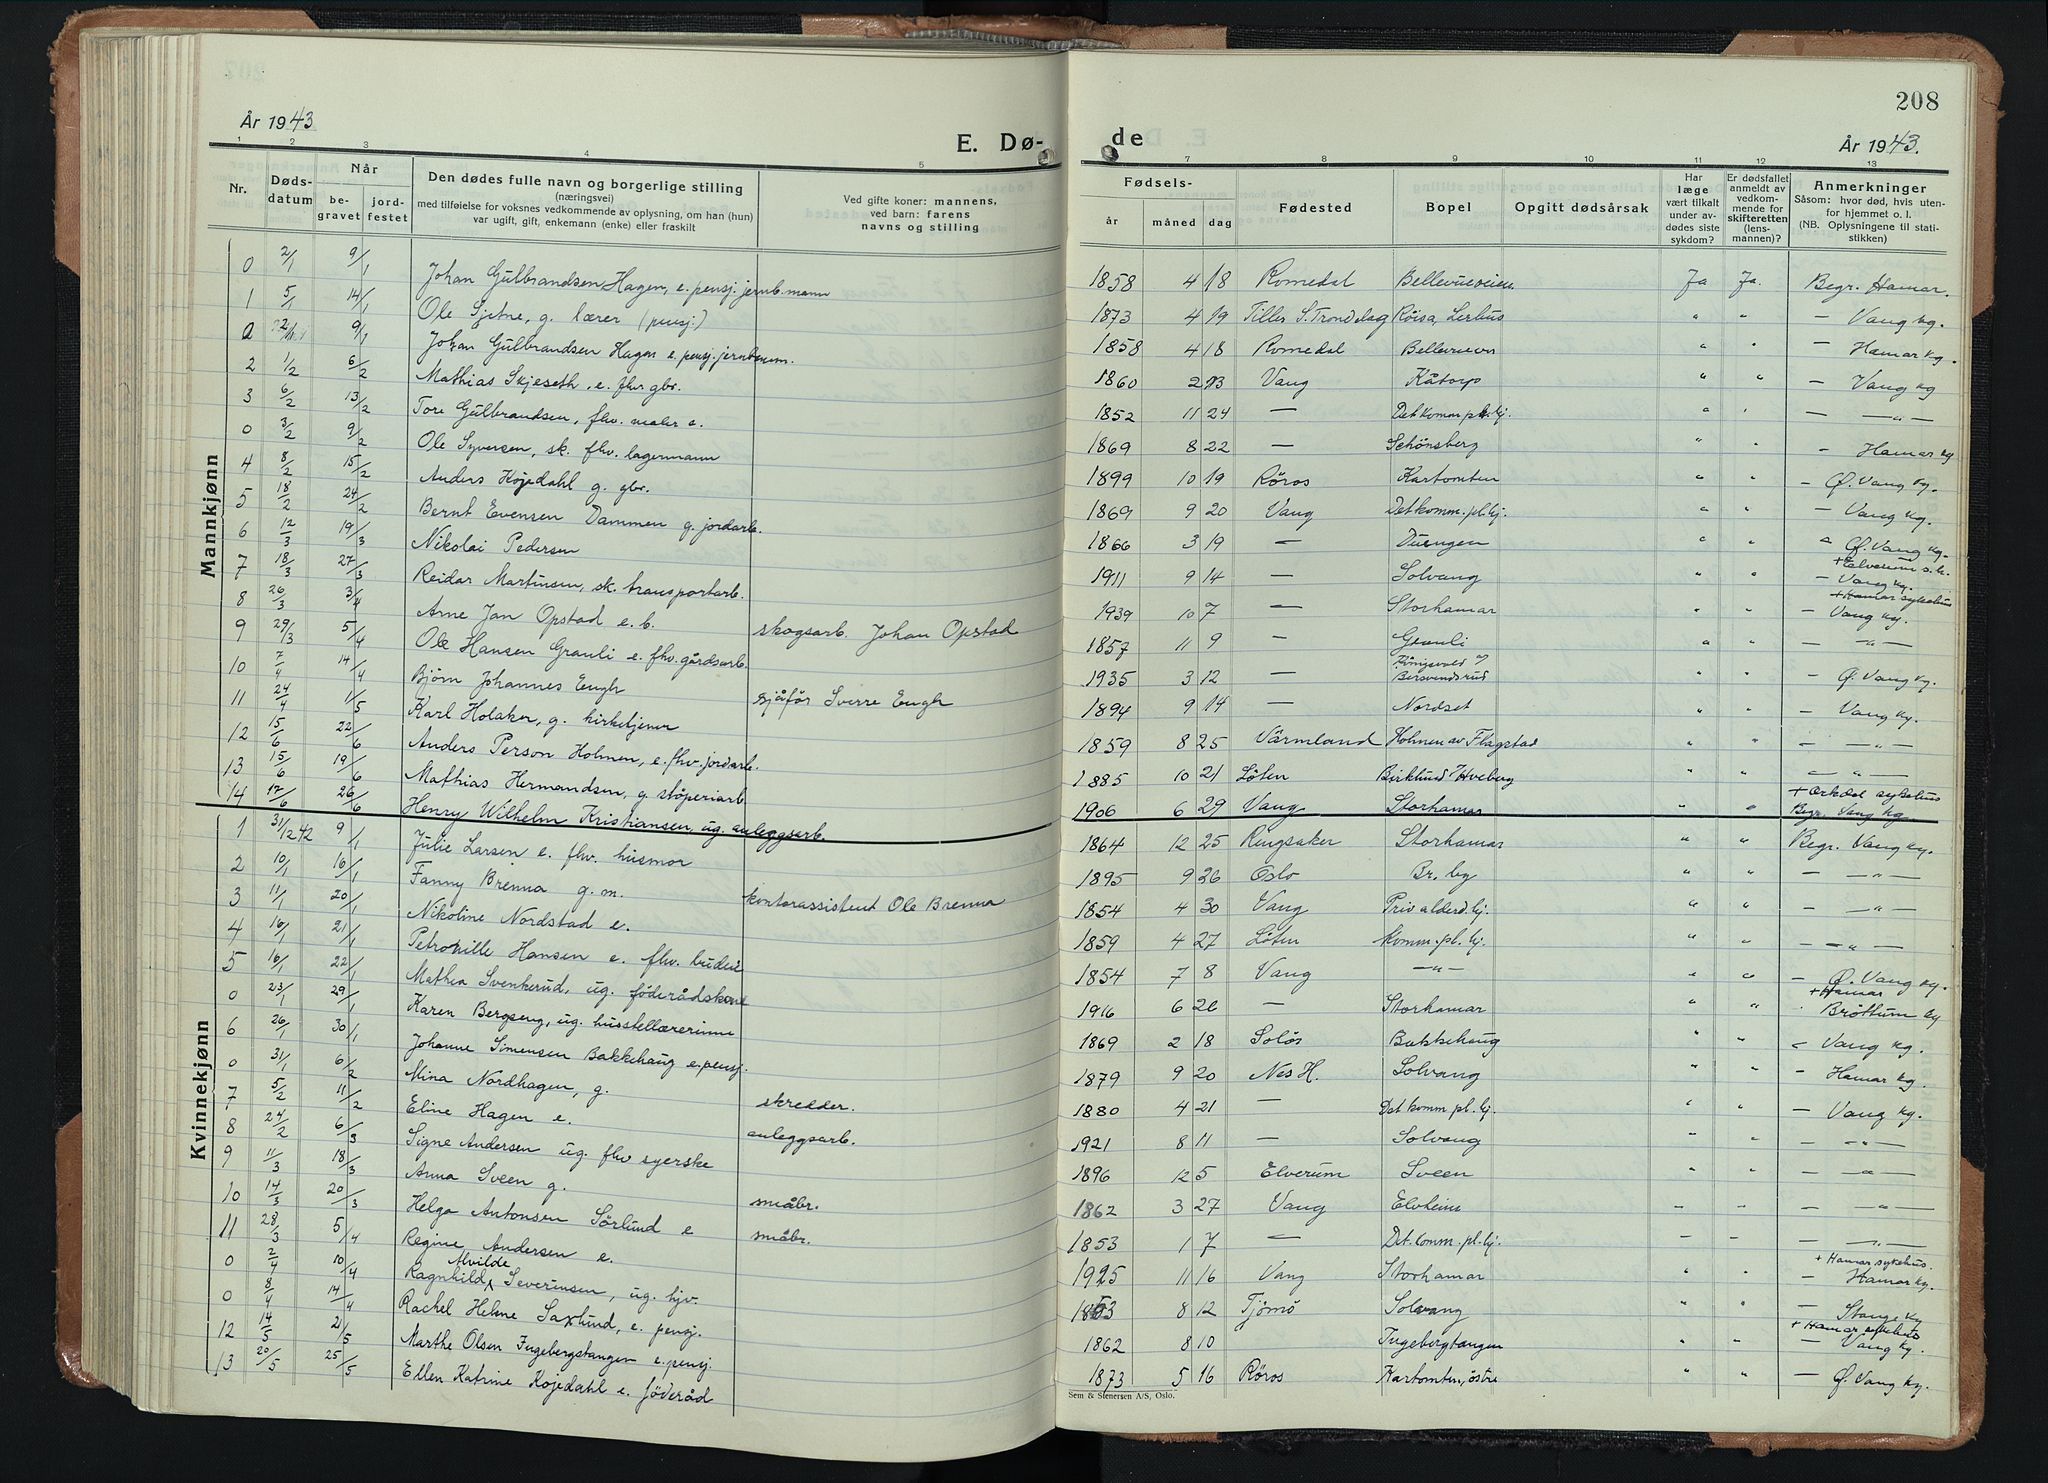 208
År 1943
E. Dø-
de
År 1943.
1 2 3 4 5 7 8 9 10 11 12 13
Nr.
Døds-
datum
Når
be-
gravet
jord-
festet
Den dødes fulle navn og borgerlige stilling
(næringsvei)
med tilføielse for voksnes vedkommende av oplysning, om han (hun)
var ugift, gift, enkemann (enke) eller fraskilt
Ved gifte koner: mannens,
ved barn: farens
navns og stilling
Fødsels-
år måned dag
Fødested
Bopel
Opgitt dødsårsak
Har
læge
vært tilkalt
under av-
dødes siste
sykdom?
Er dødsfallet
anmeldt av
vedkom-
mende for
skifteretten
(lens-
mannen)?
Anmerkninger
Såsom: hvor død, hvis uten-
for hjemmet o. l.
(NB. Oplysningene til stati-
stikken)
Mannkjønn
0 2/1 9/1 Johan Gulbrandsen Hagen, e. pensj. jernb.mann 1858 4 18 Romedal Bellevueveien Ja Ja. Begr. Hamar.
1 5/1 14/1 Ole Sjetne, g. lærer (pensj.) 1873 4 19 Tiller S. Trondelag Röisa, Lerhus " " — Vang kg.
0 2/1 9/1 Johan Gulbrandsen Hagen e. pensj. jernb.mann. 1858 4 18 Romedal Bellevuevn " " — Hamar kg.
2 1/2 6/2 Mathias Skjeseth, e. fhv. gbr. 1860 2 13 Vang Kåtorp " " — Vang kg
3 6/2 13/2 Tore Gulbrandsen, fhv. maler e. 1852 11 24 — Det komm. pl.hj. " " — — " —
0 3/2 9/2 Ole Syversen, sk. fhv. lagermann 1869 8 22 — Schönsberg " " — Hamar kg
4 8/2 15/2 Anders Kojedahl g. gbr. 1899 10 19 Röros Kartomten " " — Ø. Vang kg.
5 18/2 24/2 Bernt Evensen Dammen g. jordarb. 1869 9 20 Vang Det komm. pl.hj. " " — Vang kg.
6 12/3 19/3 Nikolai Pedersen 1866 3 19 — Duengen " " " Ø. Vang kg.
7 18/3 27/3 Reidar Martinsen, sk. transportarb. 1911 9 14 — Solvang " " + Elverum s.h. — Vang kg.
8 26/3 3/4 Arne Jan Opstad e. b. skogsarb. Johan Opstad 1939 10 7 — Storhamar " " + Hamar sykehus — Vang kg.
9 29/3 5/4 Ole Hansen Grauli e. fhv. gårdsarb. 1857 11 9 — Grauli " " — — " —
10 7/4 14/4 Björn Johannes Engh sjåför Sverre Engh 1935 3 12 — Bersvendsrud " " — Ø. Vang kg.
11 24/4 1/5 Karl Holaker, g. kirketjener 1894 9 14 — Nordset " " — Vang kg.
12 15/6 22/6 Anders Person Holmen, e. fhv. jordarb. 1859 8 25 Värmland Holmen av Flagstad " " — — " —
13 15/6 19/6 Mathias Hermandsen, g. støperiarb. 1885 10 21 Löten Birklund / Hveberg " " — " —
14 17/6 26/6 Henry Wilhelm Kristiansen, ug. anleggsarb. 1906 6 29 Vang Storhamar " " + Orkdal sykehus Begr. Vang kg
Kvinnekjønn
1 31/12 42 9/1 Julie Larsen e. fhv. husmor 1864 12 25 Ringsaker Storhamar " " Begr. Vang kg.
2 10/1 16/1 Fanny Brenna g. m. kontorassistend Ole Brenna 1895 9 26 Oslo Br. by " " — — " —
3 11/1 20/1 Nikoline Nordstad e. 1854 4 30 Vang Priv alderd. hj. " " — — " —
4 16/1 21/1 Petronille Hansen e. fhv. budeie 1859 4 27 Löten Komm. pl. hj. " " — — " —
5 16/1 22/1 Mathea Svenkerud, ug. föderådskone 1854 7 8 Vang — " — " " — Ø. Vang kg.
0 23/1 29/1 Karen Bergseng, ug. husstellærerinne 1916 6 26 — Storhamar " " + Hamar Brøttum kg
6 26/1 30/1 Johanne Simensen Bakkehaug e. pensj. 1869 2 18 Solör Bakkehaug " " — Vang kg.
0 31/1 6/2 Mina Nordhagen, g. skredder. 1879 9 20 Nes H. Solvang " " — Hamar kg.
7 5/2 11/2 Eline Hagen e. anleggsarb. 1880 4 21 — Det komm. pl. hj. " " — Vang kg.
8 24/2 6/3 Signe Andersen ug. fhv syerske 1921 8 11 — Solvang " " — — " —
9 11/3 18/3 Anna Sveen g. småbr. 1896 12 5 Elverum Sveen " " — — " —
10 14/3 20/3 Helga Antonsen Sörlund e småbr. 1862 3 27 Vang Elvheim " " — — " —
11 28/3 5/4 Regine Andersen e. 1853 1 7 — Det. komm. pl. hj. — — — — " —
0 2/4 10/4 Ragnhild Alvilde Severinsen, ug. hjv. 1925 11 16 Vang Storhamar " " + Hamar sykehus. — Hamar kg.
0 8/4 14/4 Rachel Helene Saxlund, e. pensj. 1853 8 12 Tjömö Solvang " " — Stange kg
12 14/5 21/5 Marthe Olsen Ingebergstangen e. pensj. 1862 8 10 Ingebergtangen " " + Hamar sykehus — Vang kg.
13 20/5 25/5 Ellen Katrine Kojedahl e. föderåd 1873 5 16 Röros Kartomten, östre " " — Ø. Vang kg.
Sem & Stenersen A/S, Oslo.